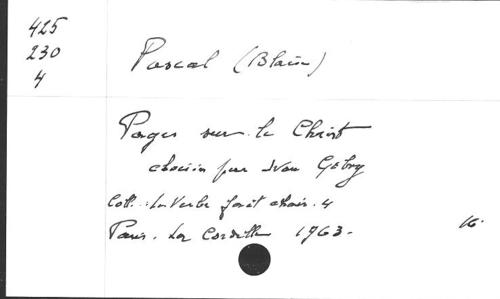 425
230
4
Pascal (Blaise)
Pages sur le Christ
choisies par Ivan Gobry
Coll. Le Verbe fait chair. 4
Paris. La Cordelle 1963.
16.